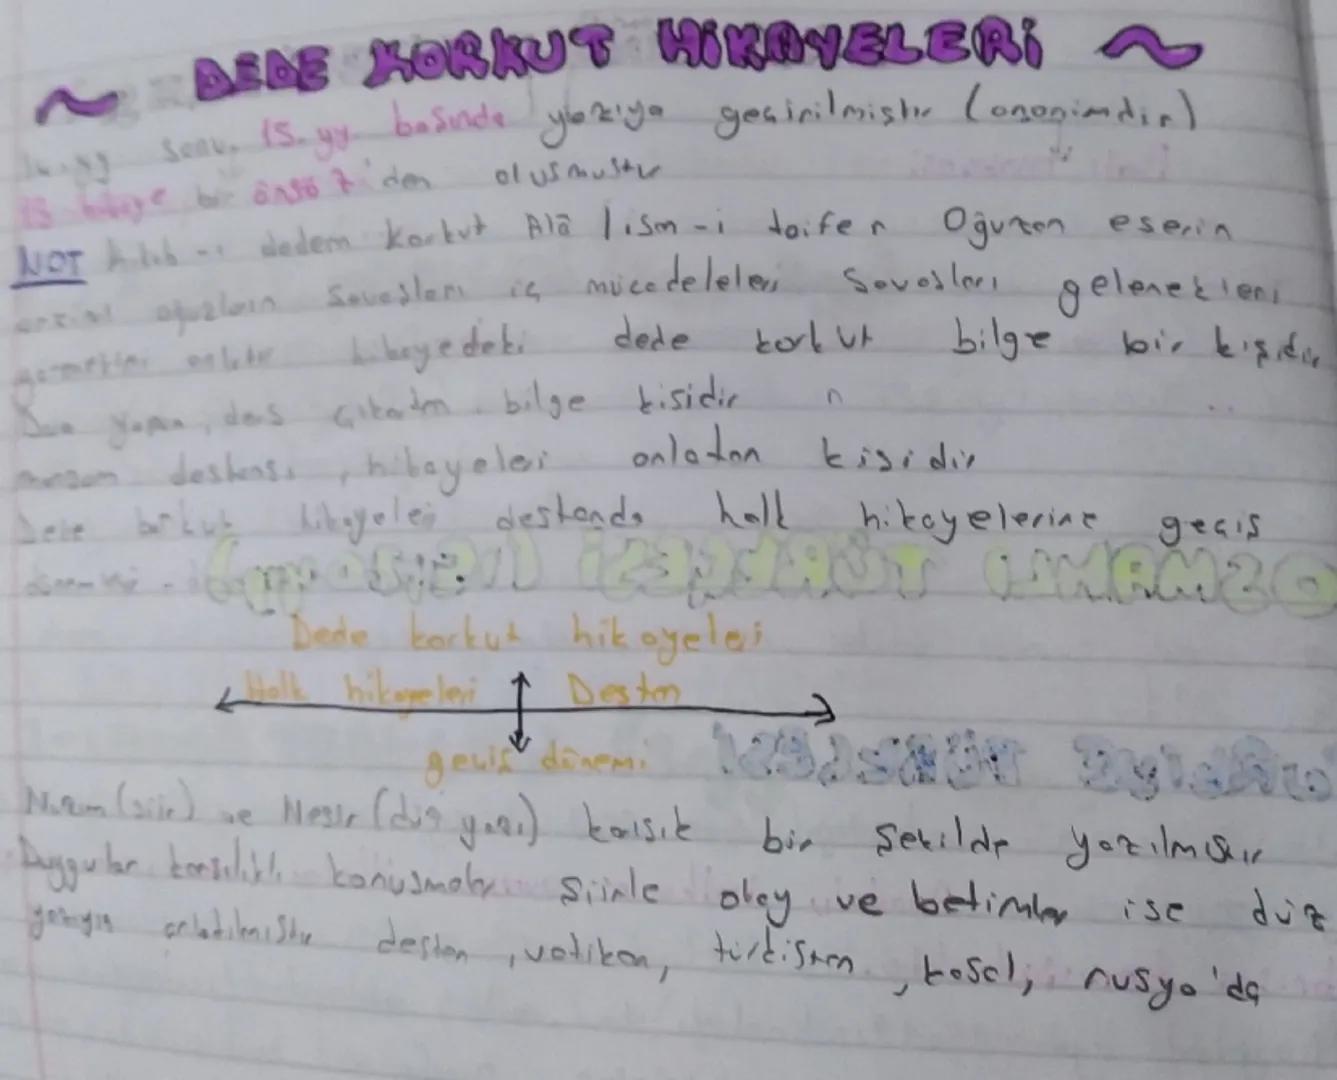 ~ DEDE KORKUT HİKAYELERİ ~
sonu 15. yy basında yazıya geçirilmiştir (anonimdir)
hikaye bir önsöz'den olusmustur
NOT kitab-ı dedem Korkut Alā lisan-i taifen Oğuzan eserin
oğuzların Savaşları iç mücadeleleri Savasları gelenekleri
anlatır hikayedeki dede korkut bilge bir kişidir
Dua yapan, ders çıkartan bilge kisidir n
destansı, hikayeleri anlatan kisidir
Dede korkut hikayeleri destanda halk hikayelerine geçis
Dede korkut hikayeleri
Halk hikayeleri Destan
geçis dönemi
Nazım (siir) ve Nesir (düz yazı) karısık bir Sekilde yazılmıstır
Duygular karsılıklı konusmalar Siirle olay ve betimler ise düz
yazıyla anlatılmıstır destan, vatikan, türkistan, kasel, rusya'da